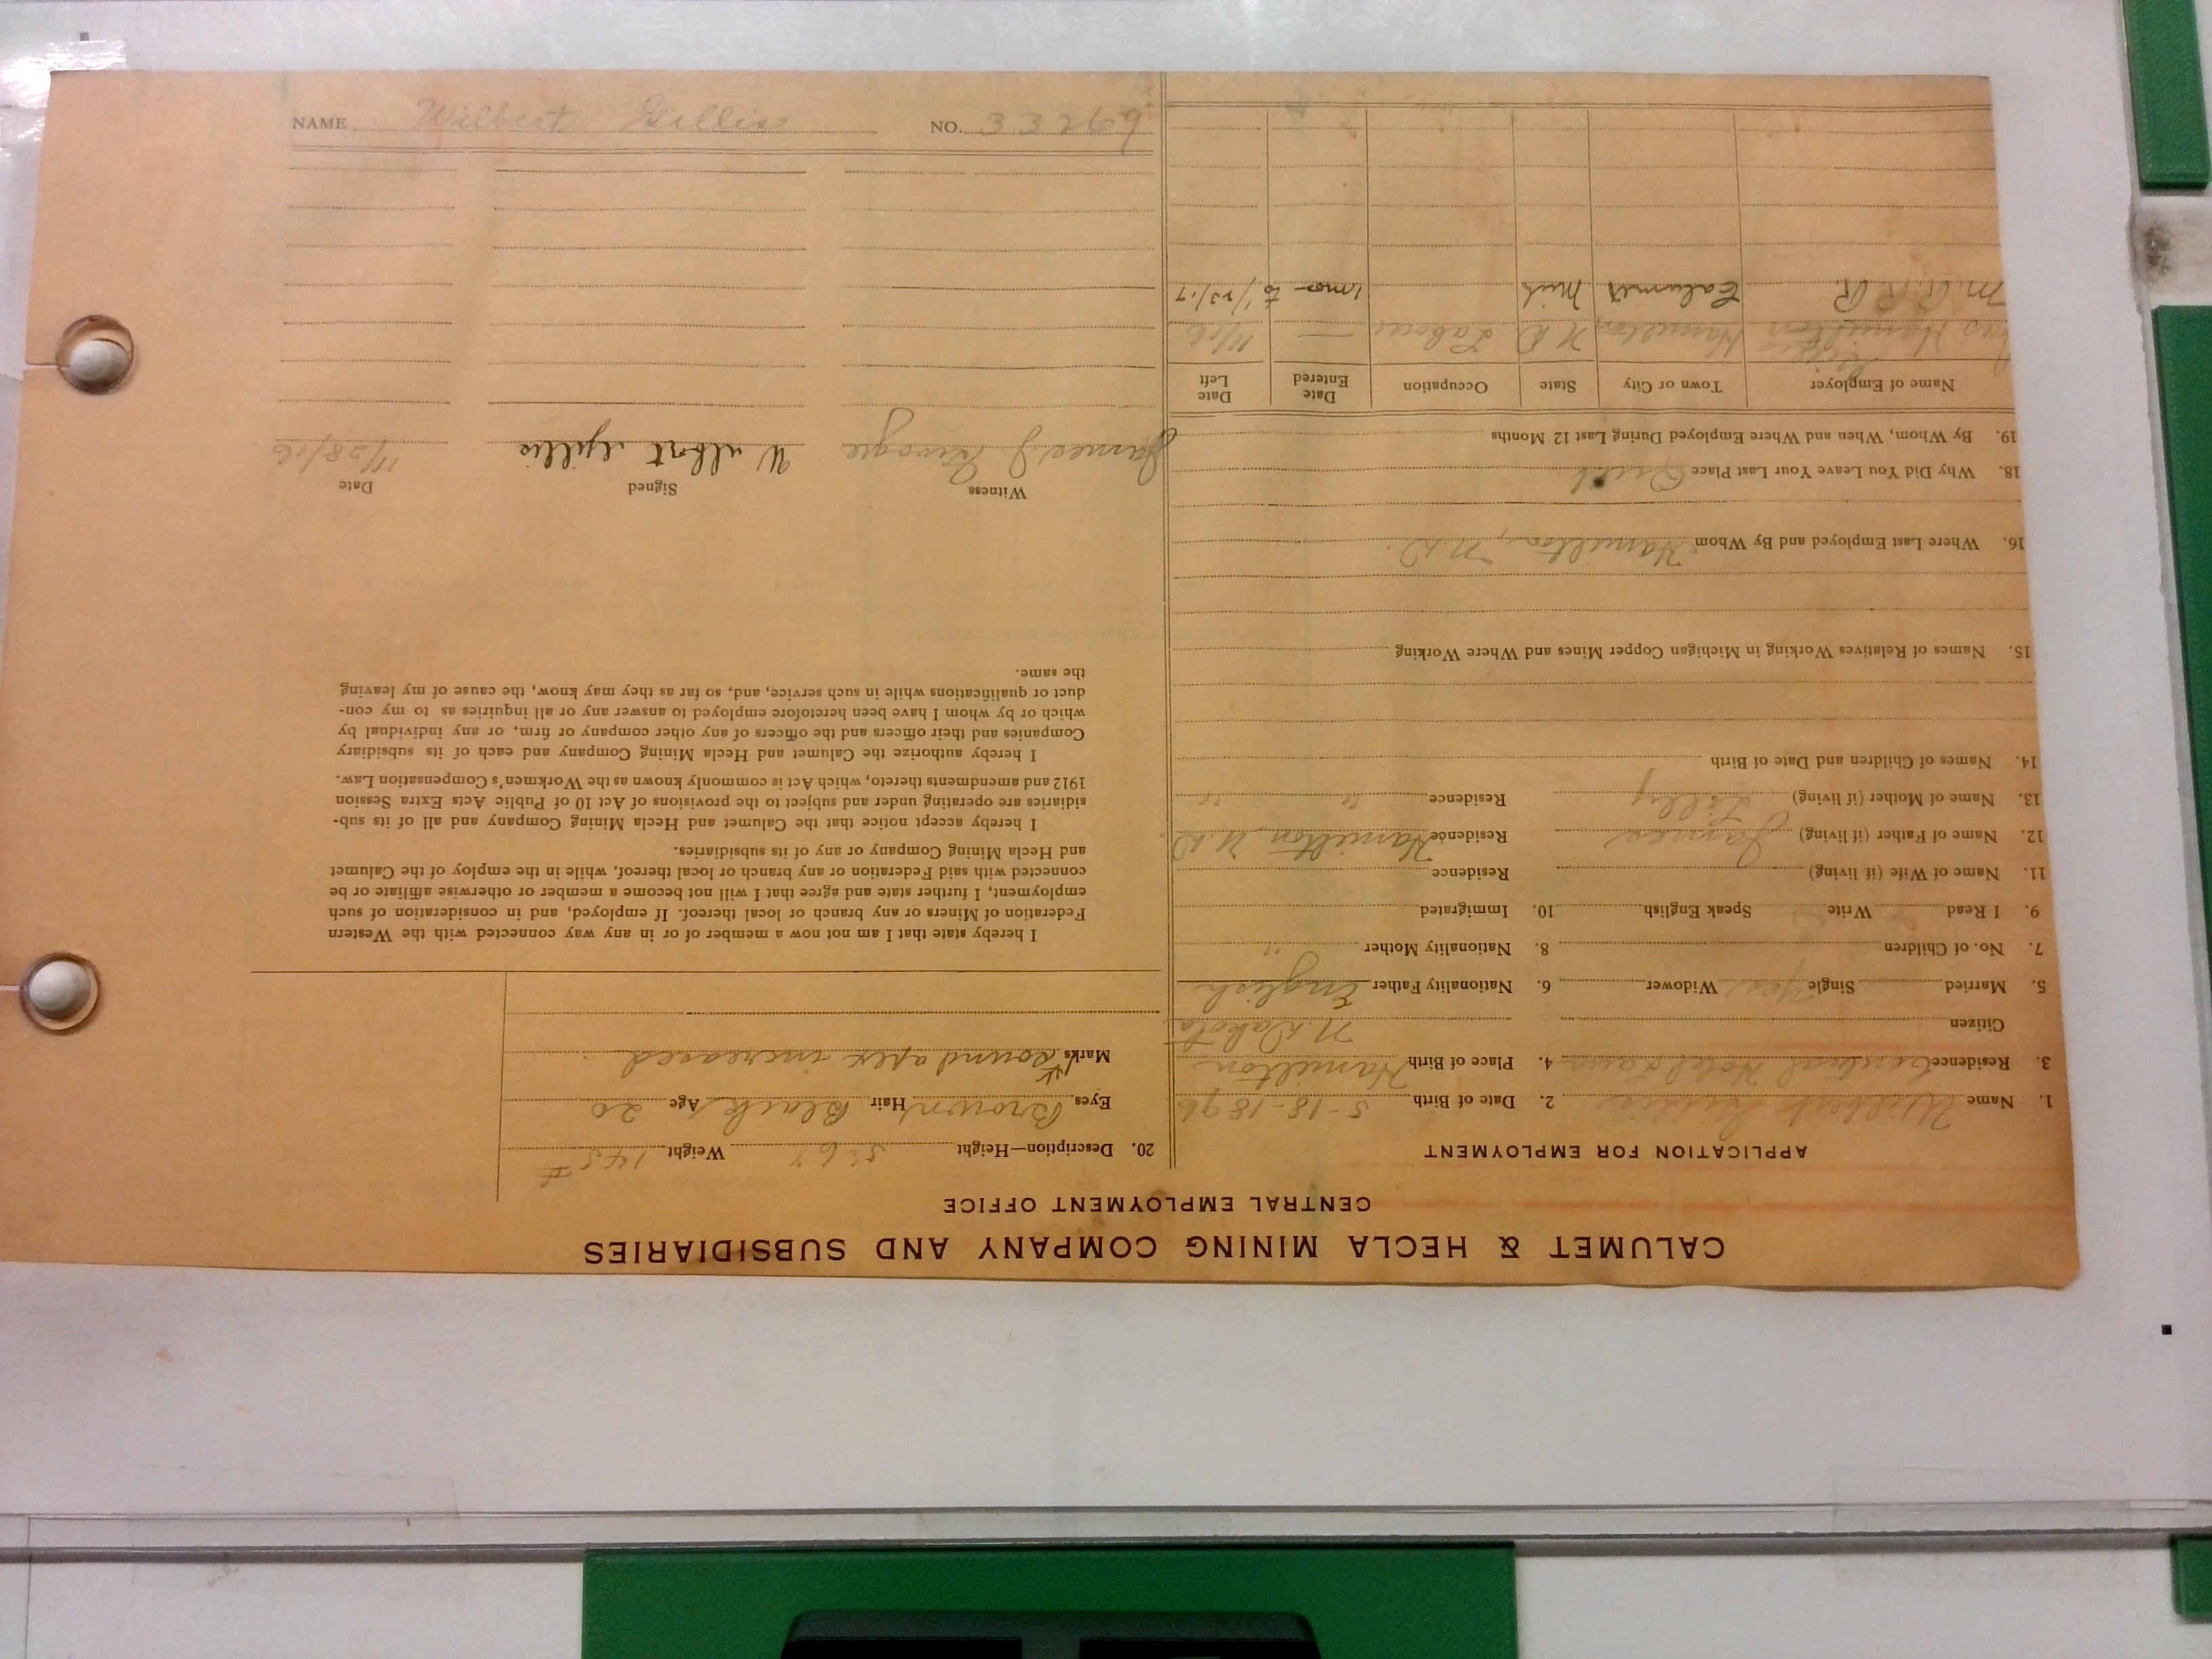 CALUMET & HECLA MINING COMPANY AND SUBSIDIARIES
CENTRAL EMPLOYMENT OFFICE
APPLICATION FOR EMPLOYMENT
1. Name Wilbert Gillis 2. Date of Birth 5-18-1896
3. Residence Central Hotel 4. Place of Birth Hamilton
Citizen N. Dakota
5. Married Single Yes Widower 6. Nationality Father English
7. No. of Children 8. Nationality Mother "
9. I Read Write Speak English 10. Immigrated
11. Name of Wife (if living) Residence
12. Name of Father (if living) James Residence Hamilton N.D.
13. Name of Mother (if living) Lilly Residence " "
14. Names of Children and Date of Birth
15. Names of Relatives Working in Michigan Copper Mines and Where Working
16. Where Last Employed and By Whom Hamilton, N.D.
18. Why Did You Leave Your Last Place Quit
19. By Whom, When and Where Employed During Last 12 Months
Name of Employer Town or City State Occupation Date Entered Date Left
Hamilton Hamilton N D Labor — 11/16
M. R. R. R. Calumet Mich 1 mo to 1/23/17
20. Description—Height 5' 6 Weight 145#
Eyes Brown Hair Black Age 20
Marks sound apex increased
I hereby state that I am not now a member of or in any way connected with the Western
Federation of Miners or any branch or local thereof. If employed, and in consideration of such
employment, I further state and agree that I will not become a member or otherwise affiliate or be
connected with said Federation or any branch or local thereof, while in the employ of the Calumet
and Hecla Mining Company or any of its subsidiaries.
I hereby accept notice that the Calumet and Hecla Mining Company and all of its sub-
sidiaries are operating under and subject to the provisions of Act 10 of Public Acts Extra Session
1912 and amendments thereto, which Act is commonly known as the Workmen's Compensation Law.
I hereby authorize the Calumet and Hecla Mining Company and each of its subsidiary
Companies and their officers and the officers of any other company or firm, or any individual by
which or by whom I have been heretofore employed to answer any or all inquiries as to my con-
duct or qualifications while in such service, and, so far as they may know, the cause of my leaving
the same.
Witness Signed Date
James J. Wilbert Gillis 11/28/16
NAME Wilbert Gillis NO. 33269